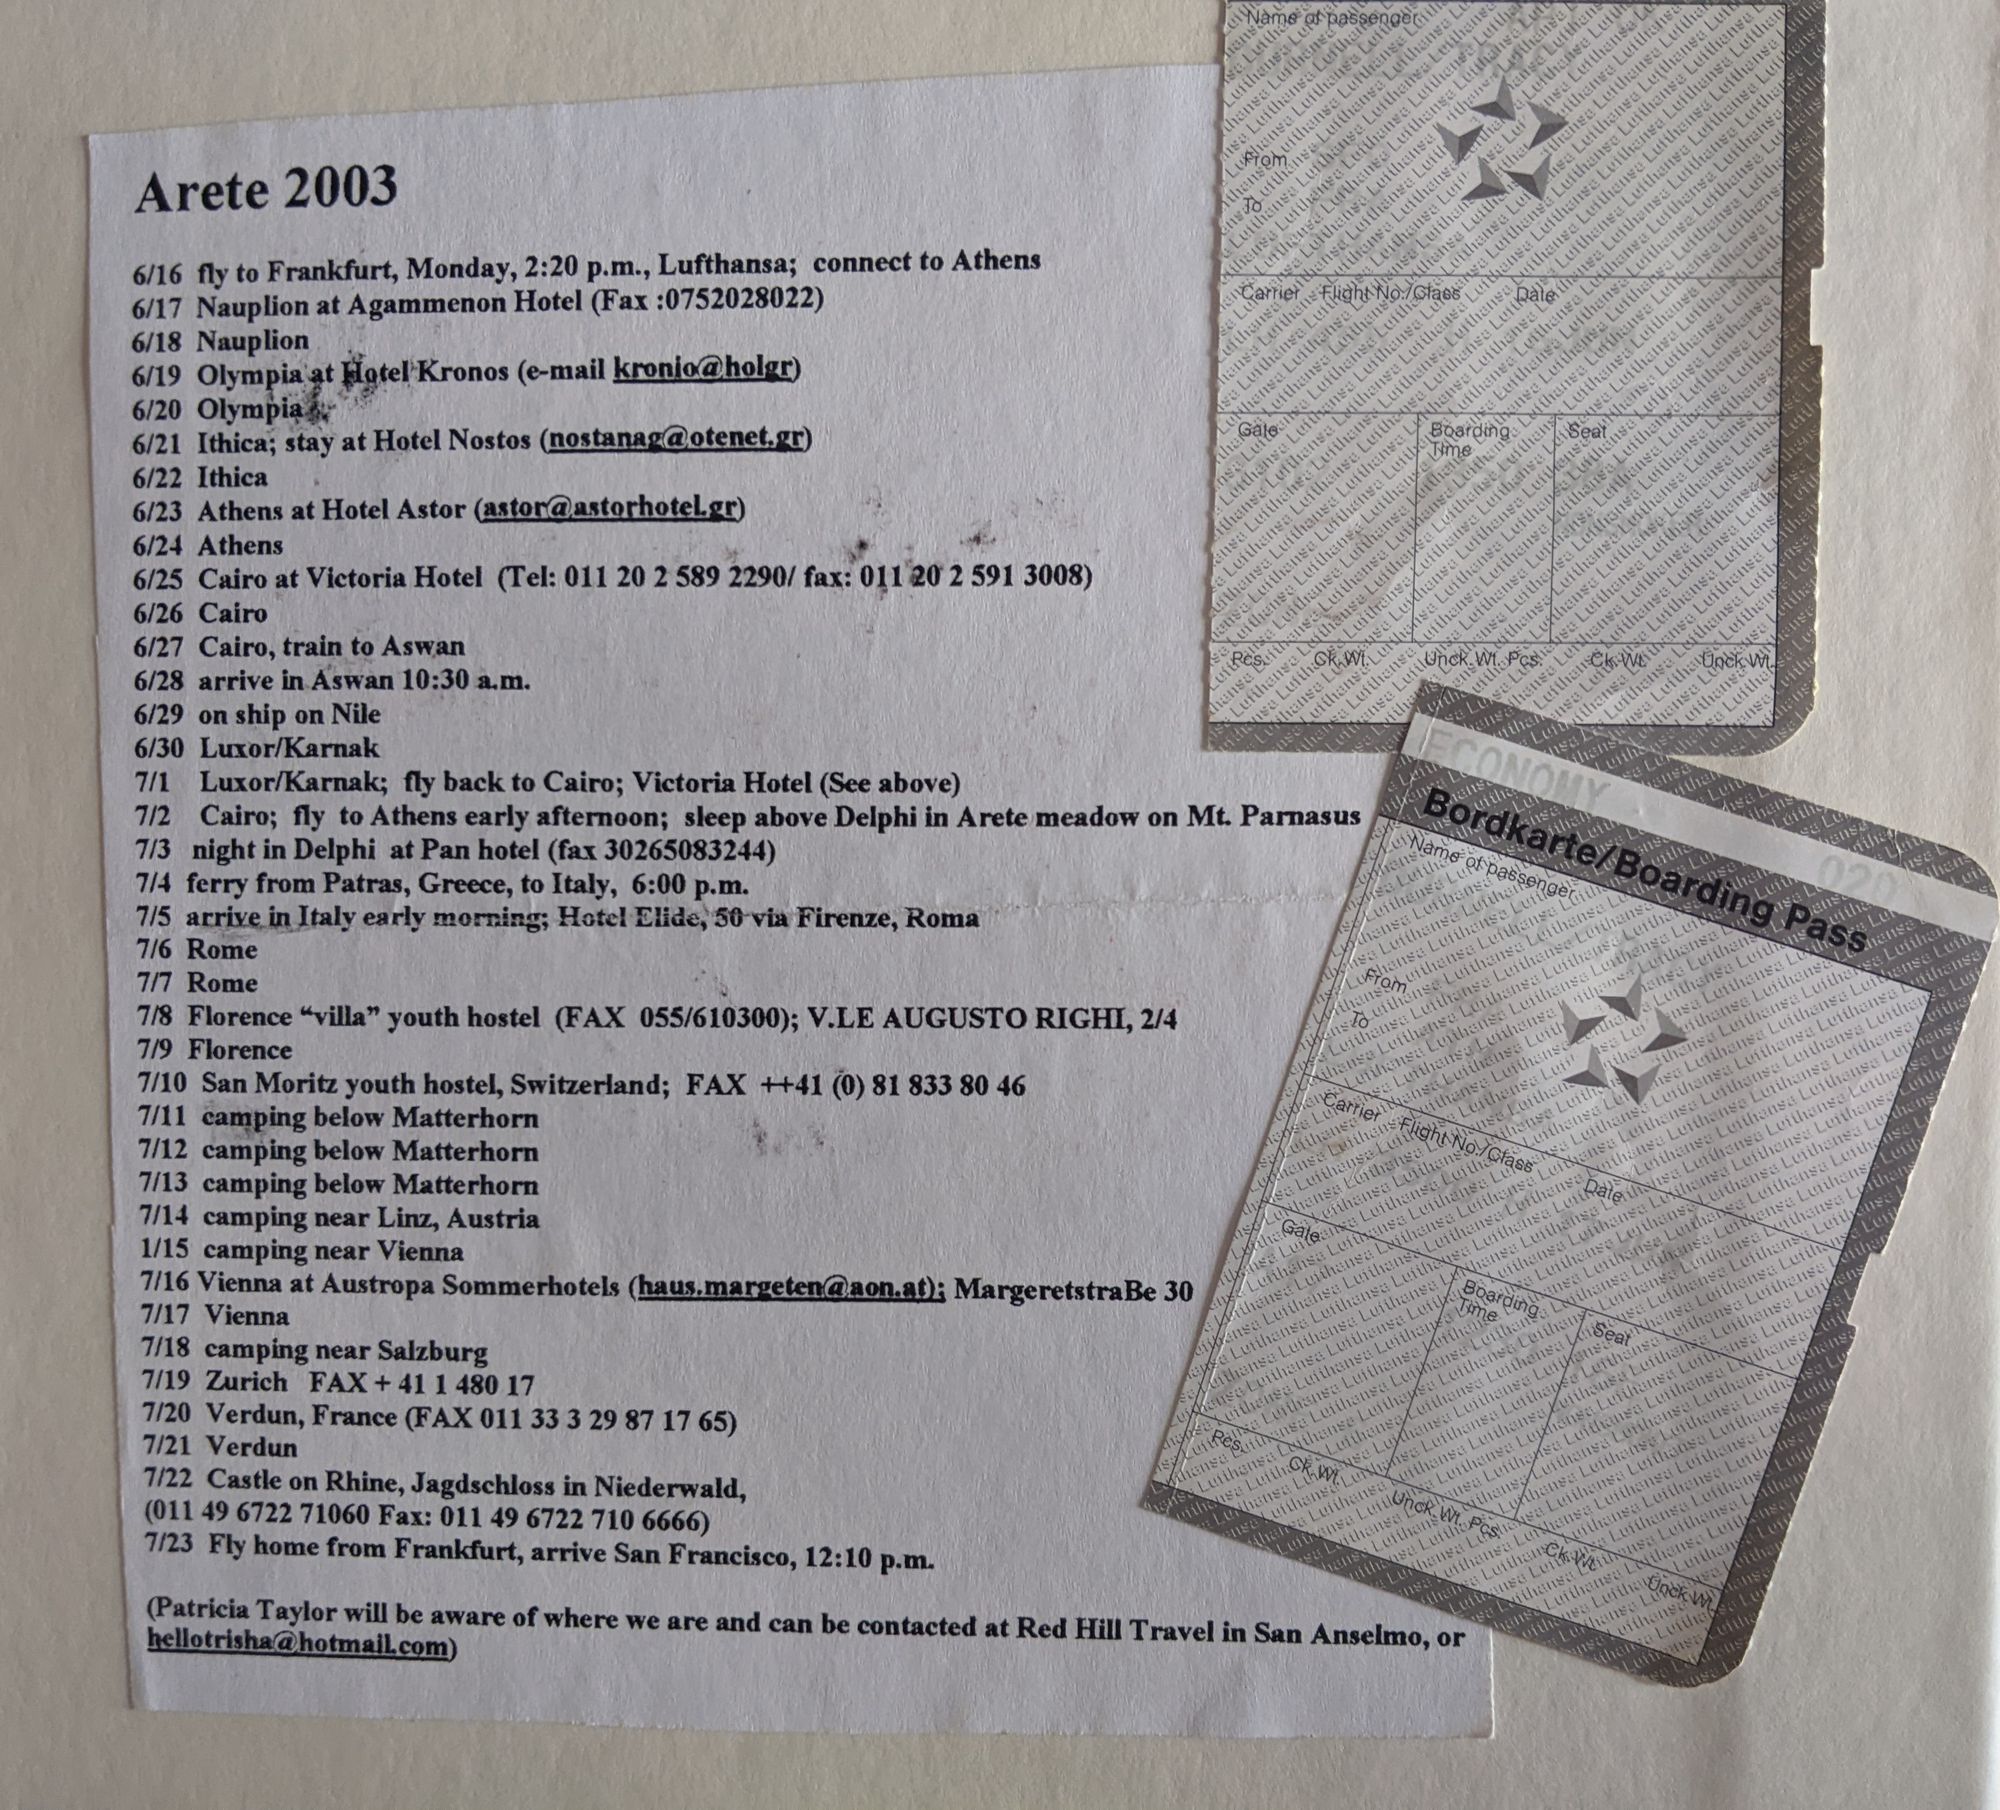 Arete 2003
6/16 fly to Frankfurt, Monday, 2:20 p.m., Lufthansa; connect to Athens
6/17 Nauplion at Agammenon Hotel (Fax :0752028022)
6/18 Nauplion
6/19 Olympia at Hotel Kronos (e-mail kronio@holgr)
6/20 Olympia
6/21 Ithica; stay at Hotel Nostos (nostanag@otenet.gr)
6/22 Ithica
6/23 Athens at Hotel Astor (astor@astorhotel.gr)
6/24 Athens
6/25 Cairo at Victoria Hotel (Tel: 011 20 2 589 2290/ fax: 011 20 2 591 3008)
6/26 Cairo
6/27 Cairo, train to Aswan
6/28 arrive in Aswan 10:30 a.m.
6/29 on ship on Nile
6/30 Luxor/Karnak
7/1 Luxor/Karnak; fly back to Cairo; Victoria Hotel (See above)
7/2 Cairo; fly to Athens early afternoon; sleep above Delphi in Arete meadow on Mt. Parnasus
7/3 night in Delphi at Pan hotel (fax 30265083244)
7/4 ferry from Patras, Greece, to Italy, 6:00 p.m.
7/5 arrive in Italy early morning; Hotel Elide, 50 via Firenze, Roma
7/6 Rome
7/7 Rome
7/8 Florence “villa” youth hostel (FAX 055/610300); V.LE AUGUSTO RIGHI, 2/4
7/9 Florence
7/10 San Moritz youth hostel, Switzerland; FAX ++41 (0) 81 833 80 46
7/11 camping below Matterhorn
7/12 camping below Matterhorn
7/13 camping below Matterhorn
7/14 camping near Linz, Austria
1/15 camping near Vienna
7/16 Vienna at Austropa Sommerhotels (haus.margeten@aon.at); MargeretstraBe 30
7/17 Vienna
7/18 camping near Salzburg
7/19 Zurich FAX + 41 1 480 17
7/20 Verdun, France (FAX 011 33 3 29 87 17 65)
7/21 Verdun
7/22 Castle on Rhine, Jagdschloss in Niederwald,
(011 49 6722 71060 Fax: 011 49 6722 710 6666)
7/23 Fly home from Frankfurt, arrive San Francisco, 12:10 p.m.
(Patricia Taylor will be aware of where we are and can be contacted at Red Hill Travel in San Anselmo, or
hellotrisha@hotmail.com)
Name of passenger
From
To
Carrier Flight No./Class Date
Gate Boarding Time Seat
Pcs. Ck.Wt. Unck.Wt. Pcs. Ck.Wt. Unck.Wt.
ECONOMY 020
Bordkarte/Boarding Pass
Name of passenger
From
To
Carrier Flight No./Class Date
Gate Boarding Time Seat
Pcs. Ck.Wt. Unck.Wt. Pcs. Ck.Wt. Unck.Wt.